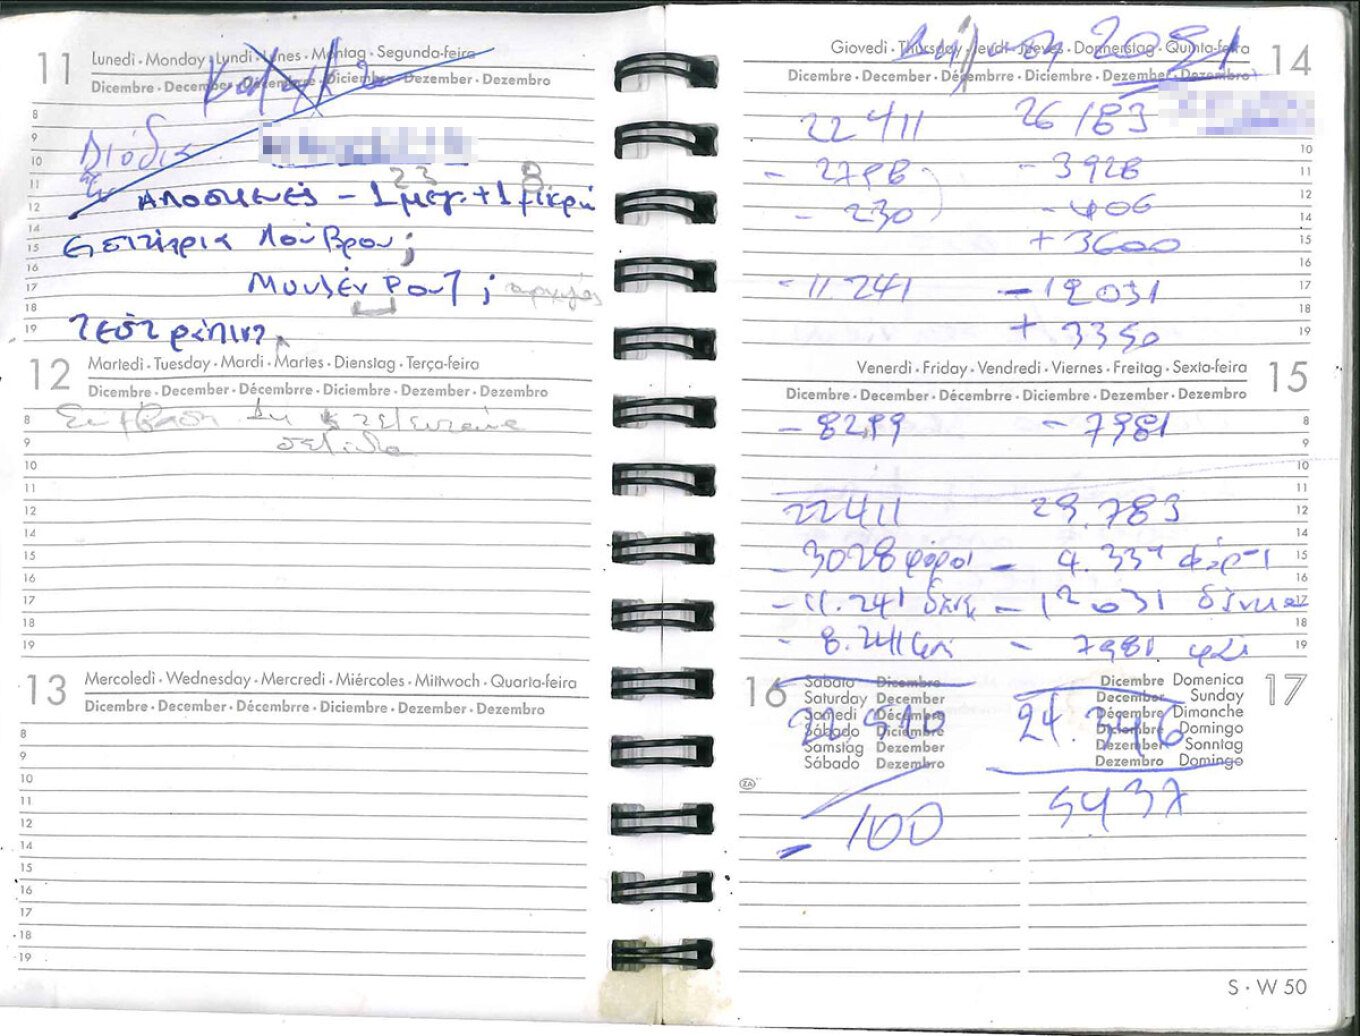 11 Lunedì · Monday · Lundi · Lunes · Montag · Segunda-feira
Dicembre · December · Décembrre · Diciembre · Dezember · Dezembro
8
9
10
11
23 8
12 ΑΠΟΣΚΕΥΕΣ - 1 μεγ. + 1 μικρή
14
15 Εισιτήρια Λούβρου;
16
17 Μουλέν Ρουζ;
18
19 Τεστ ράπιντ.
12 Martedì · Tuesday · Mardi · Martes · Dienstag · Terça-feira
Dicembre · December · Décembrre · Diciembre · Dezember · Dezembro
8
9 σελίδα
10
11
12
14
15
16
17
18
19
13 Mercoledì · Wednesday · Mercredi · Miércoles · Mittwoch · Quarta-feira
Dicembre · December · Décembrre · Diciembre · Dezember · Dezembro
8
9
10
11
12
14
15
16
17
18
19
Giovedì · Thursday · Jeudi · Jueves · Donnerstag · Quinta-feira 14
Dicembre · December · Décembrre · Diciembre · Dezember · Dezembro
22411 26183
10
- 2798 - 3928 11
12
- 230 - 406 14
+ 3600 15
16
- 11.241 - 12031 17
18
+ 3350 19
Venerdì · Friday · Vendredi · Viernes · Freitag · Sexta-feira 15
Dicembre · December · Décembrre · Diciembre · Dezember · Dezembro
- 8299 - 7981 8
9
10
11
22411 29.783 12
14
- 3028 φόροι - 4.334 15
16
- 11.241 - 12031 17
18
- 8.241 - 7981 19
16 Sabato Dicembre
Saturday December
Samedi Décembre
Sábado Diciembre
Samstag Dezember
Sábado Dezembro
22.510
Dicembre Domenica 17
December Sunday
Décembre Dimanche
Diciembre Domingo
Dezember Sonntag
Dezembro Domingo
24.346
- 100 5437
S · W 50